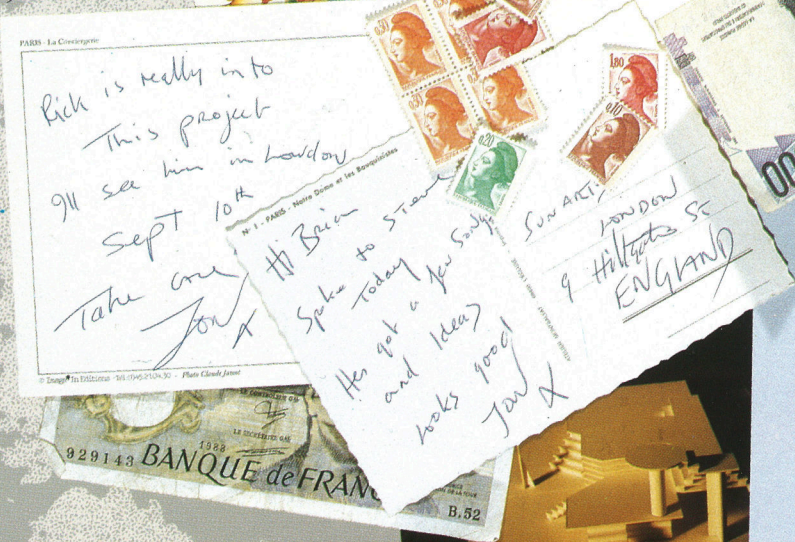 PARIS - La Conciergerie
Rick is really into
This project
I'll see him in London
Sept 10th
Take care
Jon X
© Image'In Editions - Tél: - Photo Claude Janot
N° 1 - PARIS - Notre Dame et les Bouquinistes
Hi Brian
Spoke to Steve
Today
Hes got a few songs
and Ideas
Looks good
Jon X
SUN ARTS
LONDON
9 Hillgate St
ENGLAND
0,30
0,30
0,30
0,20
1,80
0,10
LE CONTROLEUR GAL
LE SECRETAIRE GAL
1988
929143 BANQUE de FRAN
B.52
00